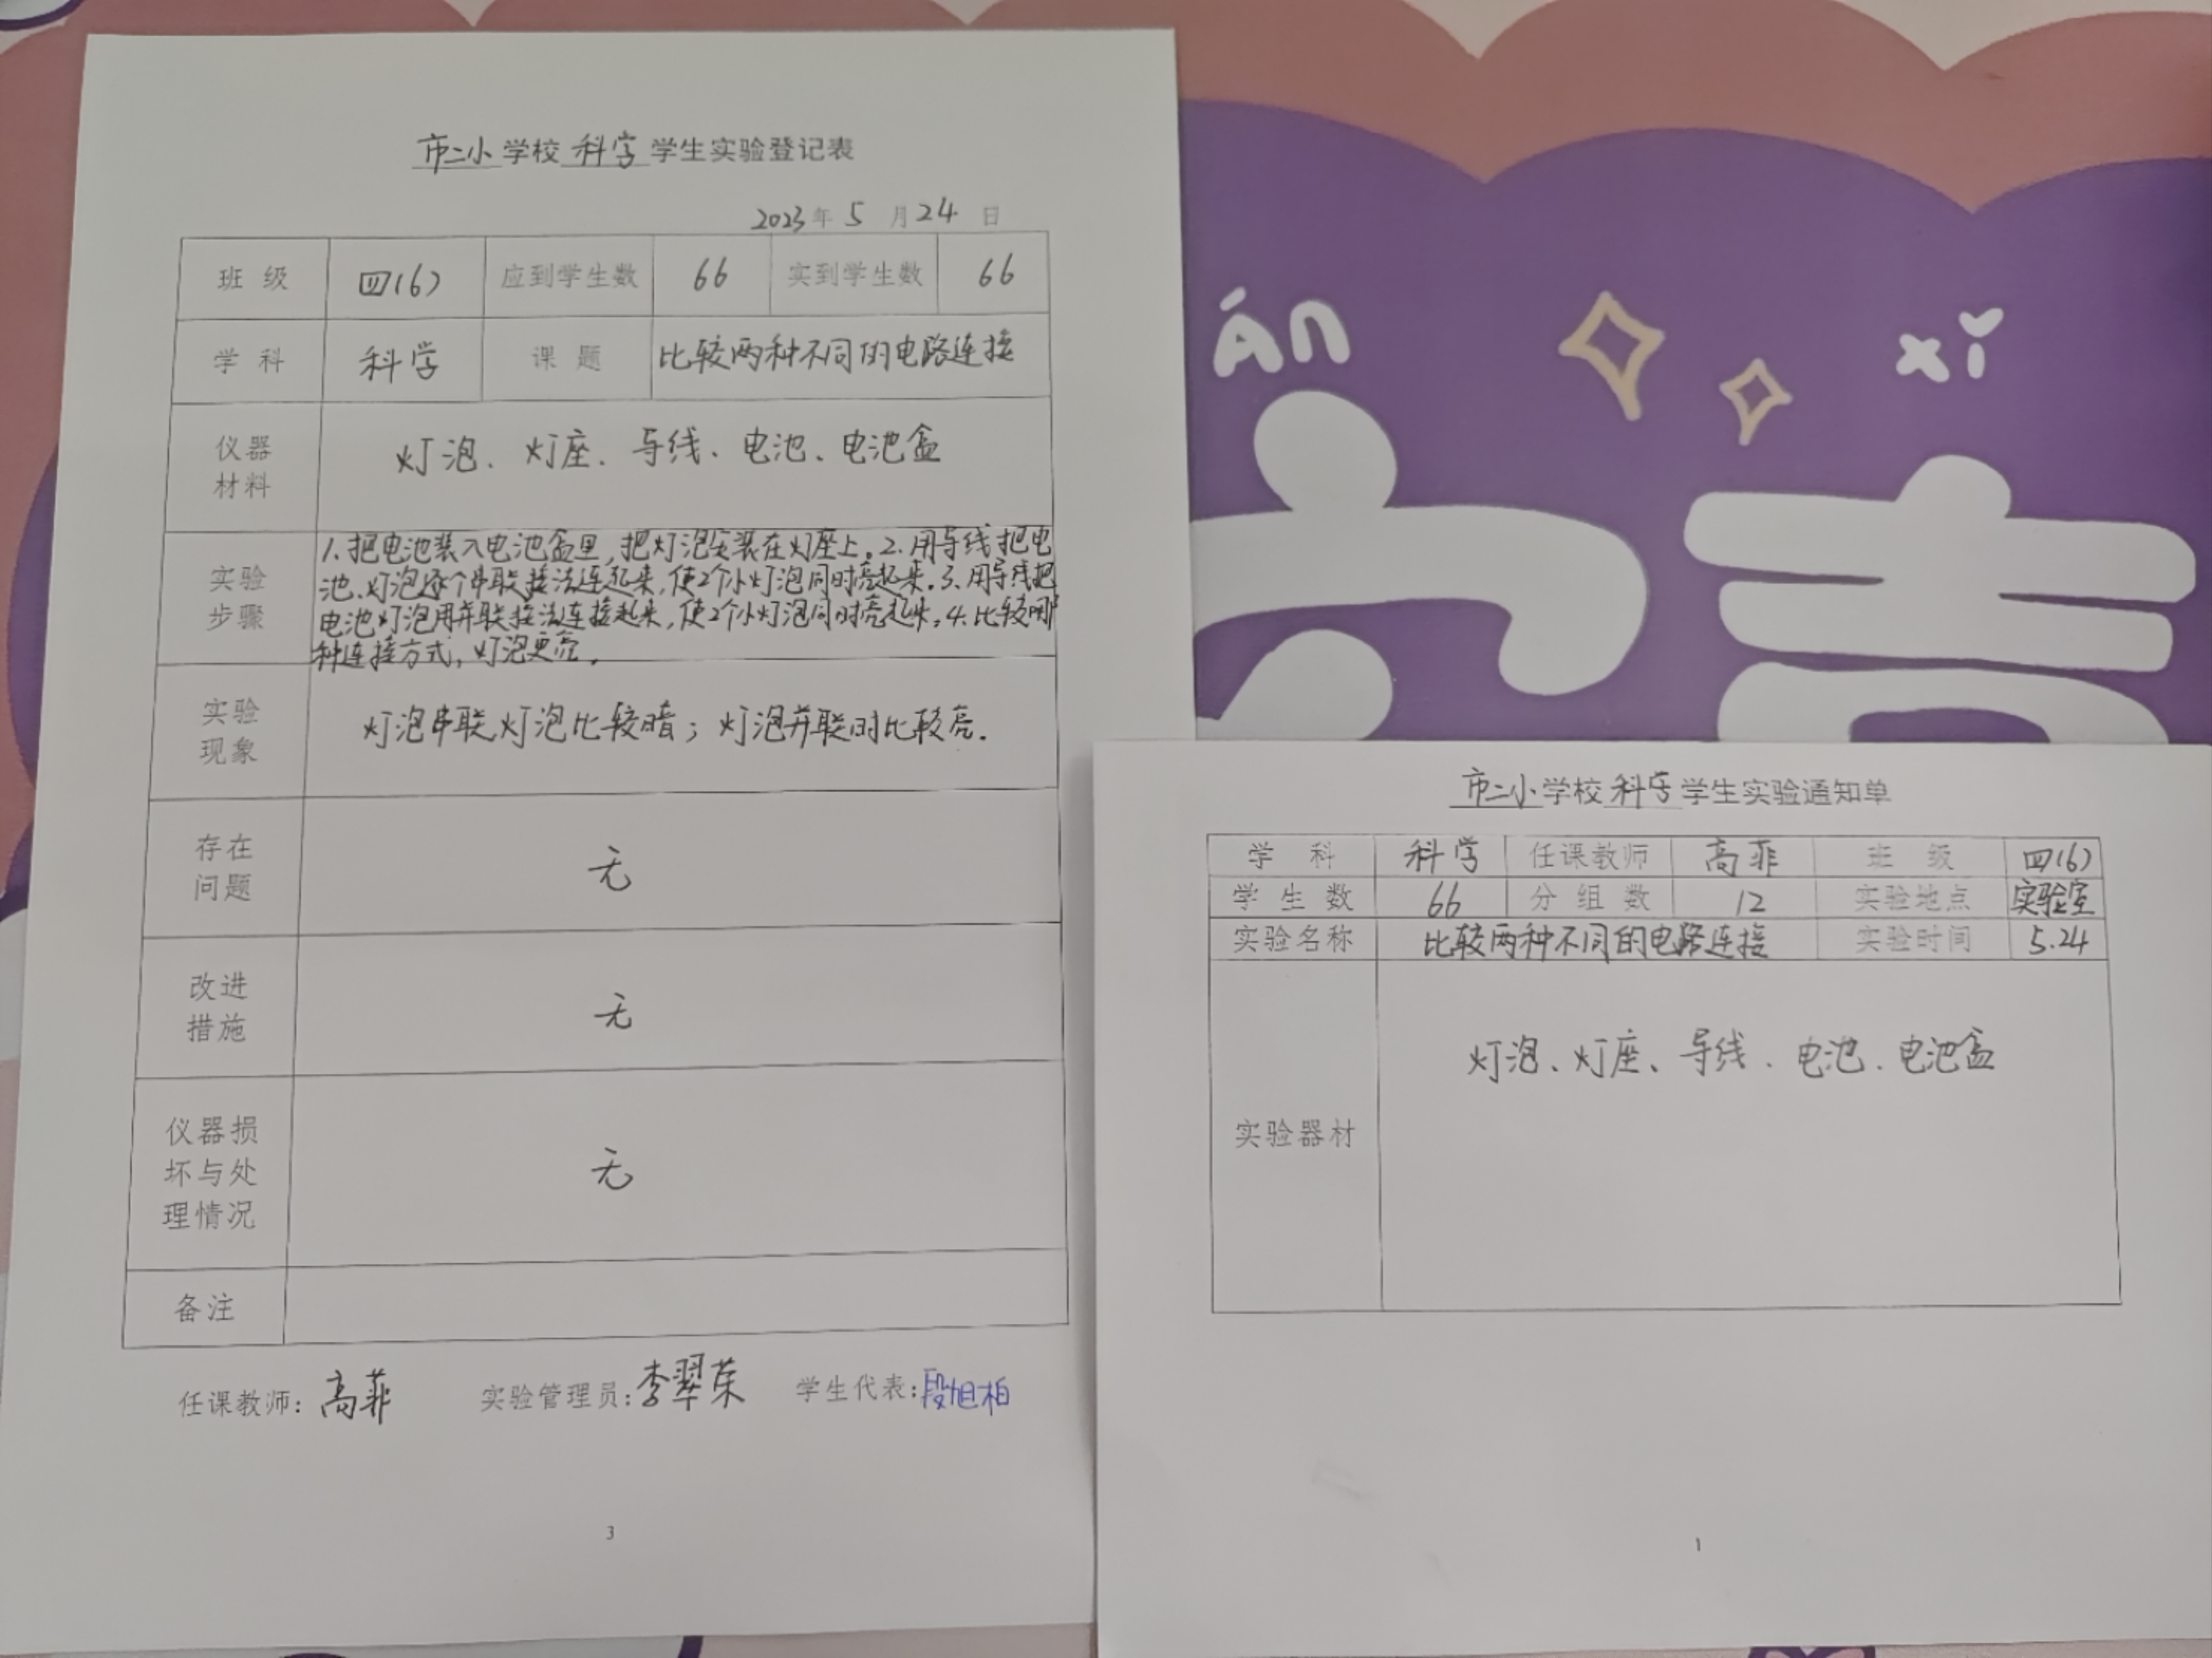 市二小学校科学学生实验登记表
2023年5月24日
班级 四(6) 应到学生数 66 实到学生数 66
学科 科学 课题 比较两种不同的电路连接
仪器材料 灯泡、灯座、导线、电池、电池盒
实验步骤 1.把电池装入电池盒里,把灯泡安装在灯座上。2.用导线把电
池、灯泡逐个串联接法连起来,使2个小灯泡同时亮起来。3.用导线把
电池灯泡用并联接法连接起来,使2个小灯泡同时亮起来。4.比较哪
种连接方式,灯泡更亮。
实验现象 灯泡串联灯泡比较暗;灯泡并联时比较亮.
存在问题 无
改进措施 无
仪器损坏与处理情况 无
备注
任课教师:高菲 实验管理员:李翠荣 学生代表:段旭柏
3
án xǐ
市二小学校科学学生实验通知单
学科 科学 任课教师 高菲 班级 四(6)
学生数 66 分组数 12 实验地点 实验室
实验名称 比较两种不同的电路连接 实验时间 5.24
实验器材 灯泡、灯座、导线、电池、电池盒
1